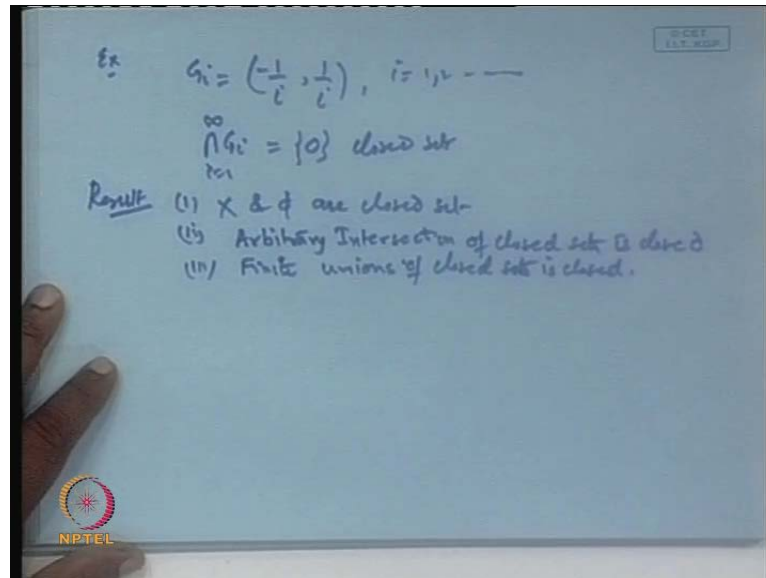 O CET
I.I.T. KGP
Ex Gi = (-1/i , 1/i), i = 1,2 - - —
∞
∩ Gi = {0} closed set
i=1
Result (i) X & ϕ are closed set
(ii) Arbitrary Intersection of closed sets is closed
(iii) Finite unions of closed sets is closed.
NPTEL